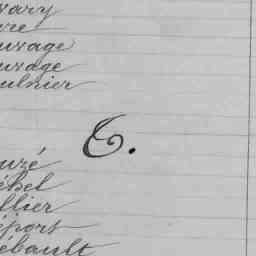 vary
vre
uvage
uvage
ulnier
T.
uzé
ébel
llier
éport
ébault